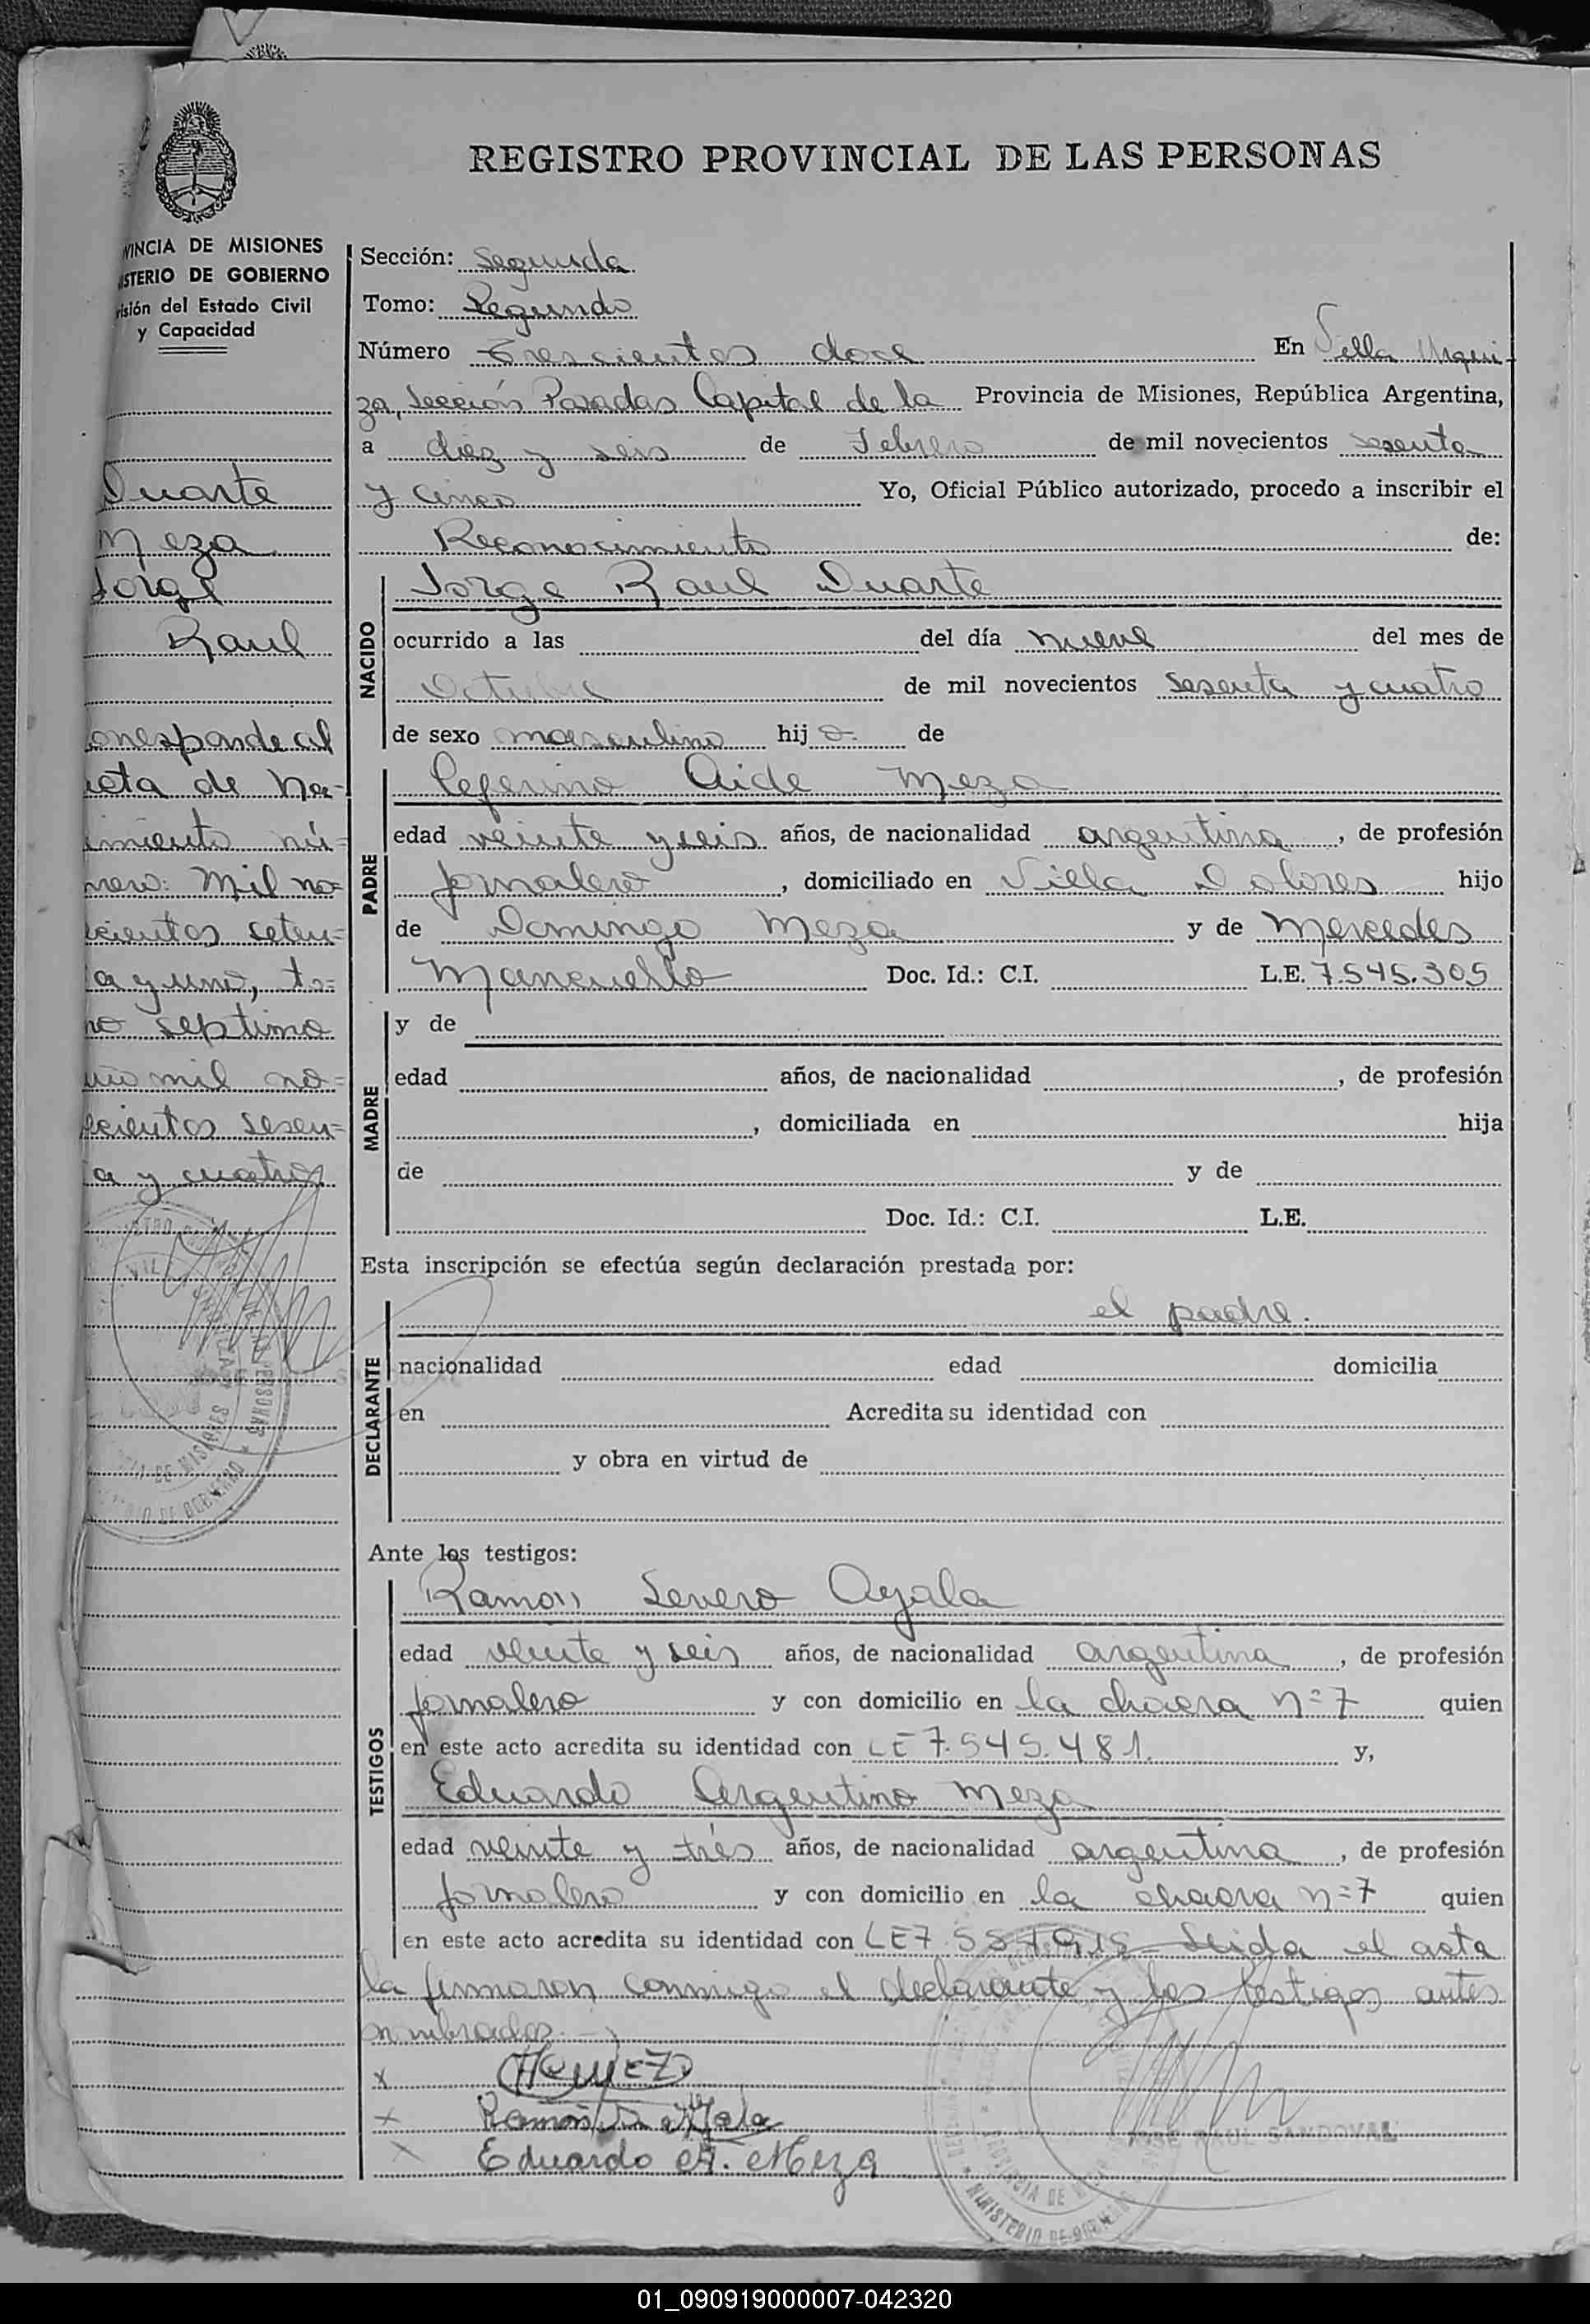 REGISTRO PROVINCIAL DE LAS PERSONAS
VINCIA DE MISIONES
ISTERIO DE GOBIERNO
isión del Estado Civil
y Capacidad
Duarte
Meza
Jorge
Raul
orresponde al
acta de Na-
imiento nú-
mero: Mil no-
ecientos seten-
ta y uno, to-
mo septimo
año mil no-
ecientos sesen-
ta y cuatro
Sección: Segunda
Tomo: Segundo
Número Trescientos doce En Villa Urqui-
za, Sección Posadas Capital de la Provincia de Misiones, República Argentina,
a diez y seis de Febrero de mil novecientos sesenta
y cinco Yo, Oficial Público autorizado, procedo a inscribir el
Reconocimiento de:
NACIDO
Jorge Raul Duarte
ocurrido a las del día nueve del mes de
Octubre de mil novecientos sesenta y cuatro
de sexo masculino hijo de
PADRE
Ceferino Aide Meza
edad veinte y seis años, de nacionalidad argentina, de profesión
jornalero, domiciliado en Villa Dolores hijo
de Domingo Meza y de Mercedes
Mancuello Doc. Id.: C.I. L.E. 7.545.305
MADRE
y de
edad años, de nacionalidad , de profesión
, domiciliada en hija
de y de
Doc. Id.: C.I. L.E.
Esta inscripción se efectúa según declaración prestada por:
DECLARANTE
el padre.
nacionalidad edad domicilia
en Acredita su identidad con
y obra en virtud de
Ante los testigos:
TESTIGOS
Ramon Severo Ayala
edad veinte y seis años, de nacionalidad argentina, de profesión
jornalero y con domicilio en la chacra nº 7 quien
en este acto acredita su identidad con LE 7.545.481. y,
Eduardo Argentino Meza
edad veinte y tres años, de nacionalidad argentina, de profesión
jornalero y con domicilio en la chacra nº 7 quien
en este acto acredita su identidad con LE 7. Leida el acta
la firmaron conmigo el declarante y los testigos antes
nombrados.-
x
x Ramon S. Ayala
x Eduardo A. Meza
JOSE RAUL SANDOVAL
MINISTERIO DE GOBIERNO
01_090919000007-042320